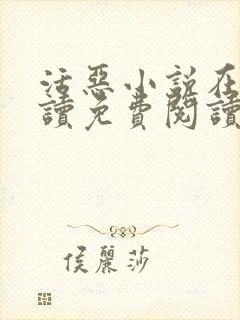 活惡小說在
讀免費閱讀
侯麗莎